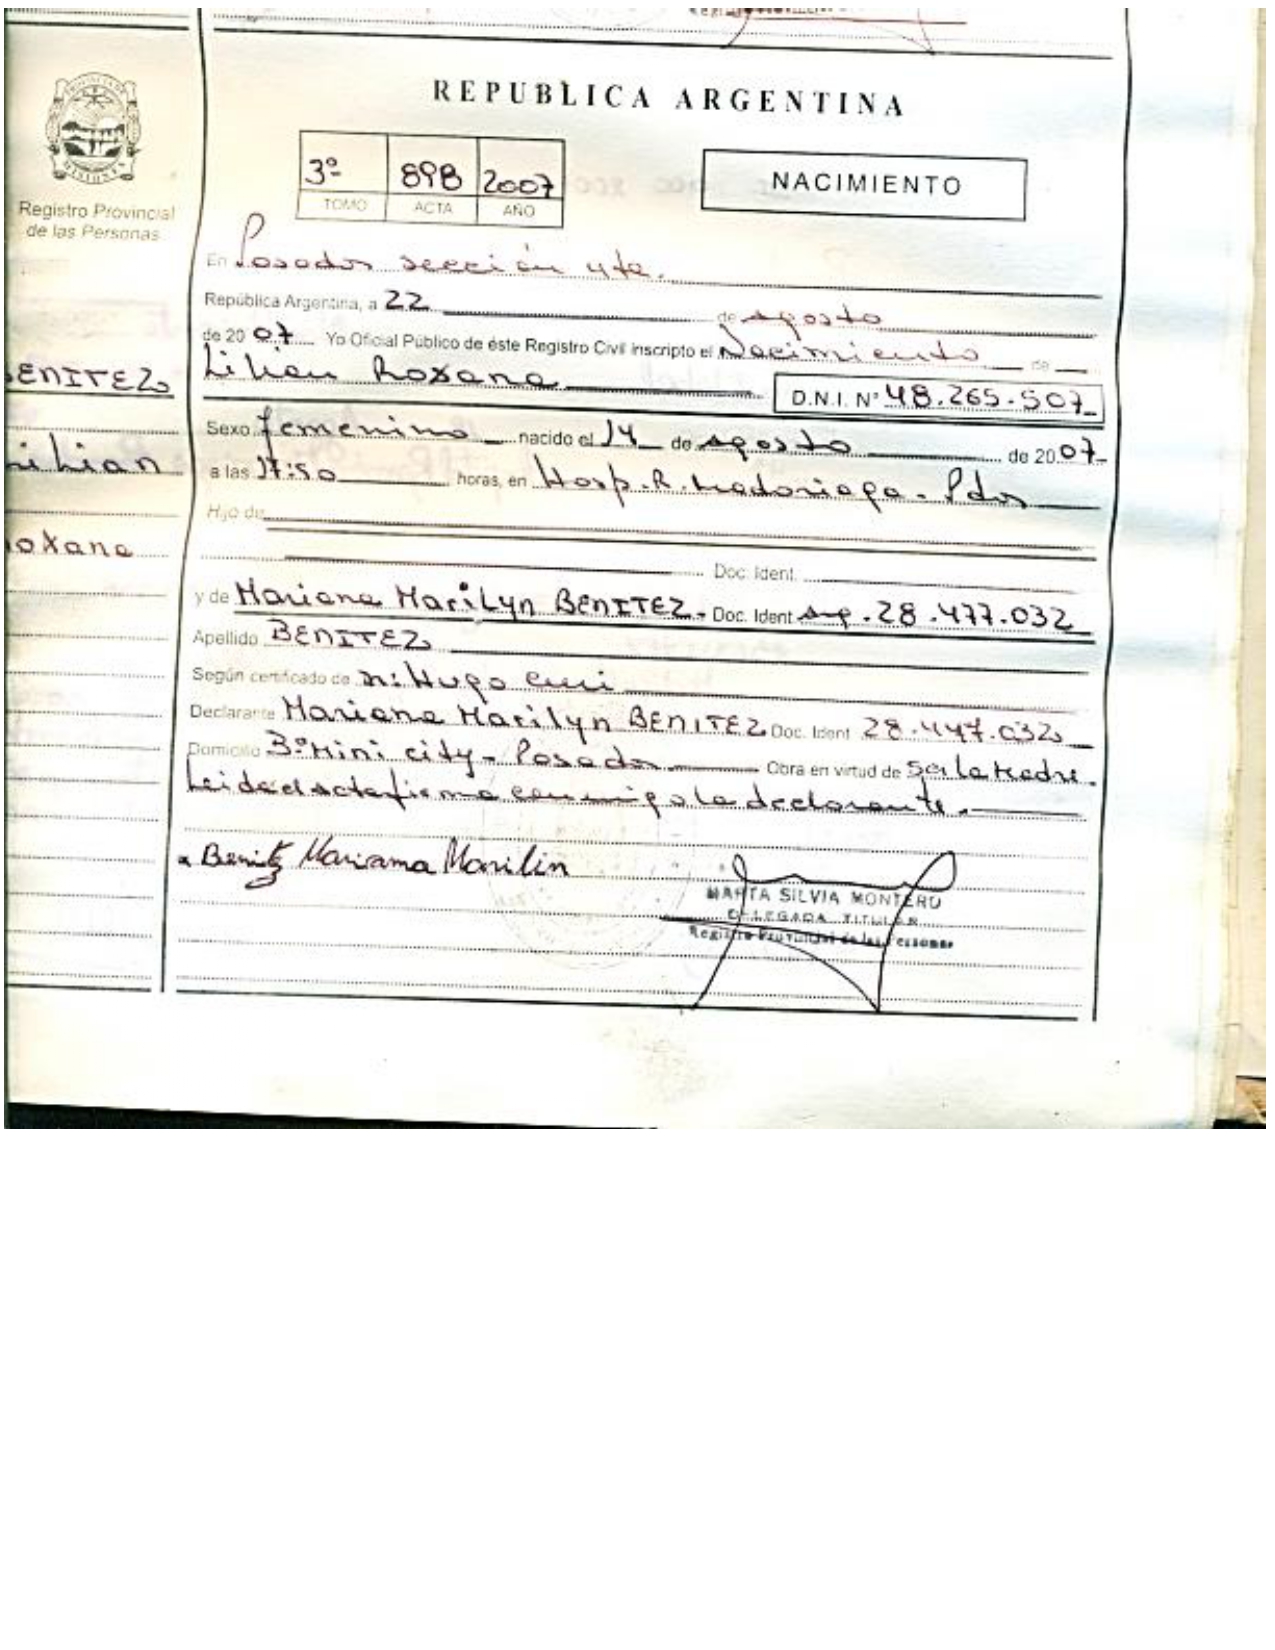 REPUBLICA ARGENTINA
3º 898 2007
TOMO ACTA AÑO
NACIMIENTO
Registro Provincial
de las Personas
BENITEZ
Lilian
Roxana
En Posadas sección 4ta.
República Argentina, a 22 de agosto
de 2007 Yo Oficial Público de éste Registro Civil inscripto el Nacimiento de
Lilian Roxana D.N.I. Nº 48.265.507
Sexo femenino nacido el 14 de agosto de 2007
a las 17:50 horas, en Hosp. R. Madariaga - Pdas
Hijo de
Doc. Ident.
y de Mariana Marilyn BENITEZ. Doc. Ident 28.477.032
Apellido BENITEZ
Según certificado de Hugo
Declarante Mariana Marilyn BENITEZ Doc. Ident 28.447.032
Domicilio Bº Mini city - Posadas Obra en virtud de Ser la Madre.
Leida el acta firma conmigo la declarante.
Benitz Mariama Marilin
MARTA SILVIA MONTERO
DELEGADA TITULAR
Registro Provincial de las Personas